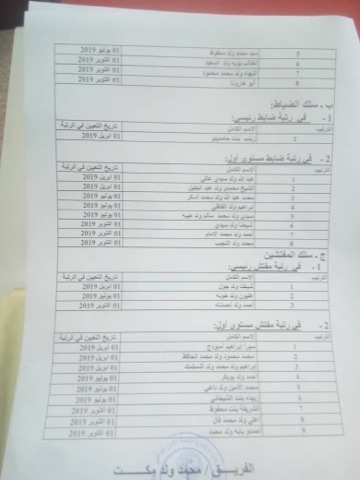 5 سيد محمد ولد محفوظ 01 يوليو 2019
6 الطالب بويه ولد السعيد 01 اكتوبر 2019
7 الشهاه ولد محمد محمود 01 اكتوبر 2019
8 01 اكتوبر 2019
ب - سلك الضباط:
1 - في رتبة ضابط رئيسي:
الترتيب الإسم الكامل تاريخ التعيين في الرتبة
1 زينب بنت حامدينو 01 ابريل 2019
2 - في رتبة ضابط مستوى أول:
الترتيب الإسم الكامل تاريخ التعيين في الرتبة
1 عبد الله ولد سيدي عالي 01 ابريل 2019
2 الشيخ محمدو ولد عبد الجليل 01 ابريل 2019
3 محمد عبد الله ولد محمد 01 ابريل 2019
4 ابراهيم ولد 01 يوليو 2019
5 سيدي ولد محمد سالم ولد هيبه 01 يوليو 2019
6 شيخنا ولد سيدي 01 اكتوبر 2019
7 أحمد ولد محمد الامام 01 اكتوبر 2019
8 محمد ولد النجيب 01 اكتوبر 2019
ج - سلك المفتشين
1 - في رتبة مفتش رئيسي:
الترتيب الإسم الكامل تاريخ التعيين في الرتبة
1 شيخنا ولد 01 ابريل 2019
2 ولد خونه 01 يوليو 2019
3 أحمد ولد 01 اكتوبر 2019
2 - في رتبة مفتش مستوى أول:
الترتيب الإسم الكامل تاريخ التعيين في الرتبة
1 ابراهيم 01 ابريل 2019
2 محمد محمود ولد محمد الحافظ 01 ابريل 2019
3 ابراهيم ولد محمد ولد 01 ابريل 2019
4 أحمد ولد بوبكر 01 يوليو 2019
5 محمد الأمين ولد داهي 01 يوليو 2019
6 بنت 01 يوليو 2019
7 الشريفة بنت محفوظ 01 اكتوبر 2019
8 اعلي ولد محمد فال 01 اكتوبر 2019
9 بابه ولد محمد 01 اكتوبر 2019
الفريق / محمد ولد مكت